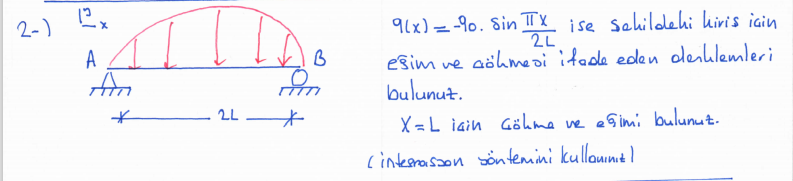 2-)
y
x
A
B
2L
q(x) = -q0. Sin πx/2L ise şekildeki kiriş için
eğim ve çökmesi ifade eden denklemleri
bulunuz.
X=L için çökme ve eğimi bulunuz.
(integrasyon yöntemini kullanınız)